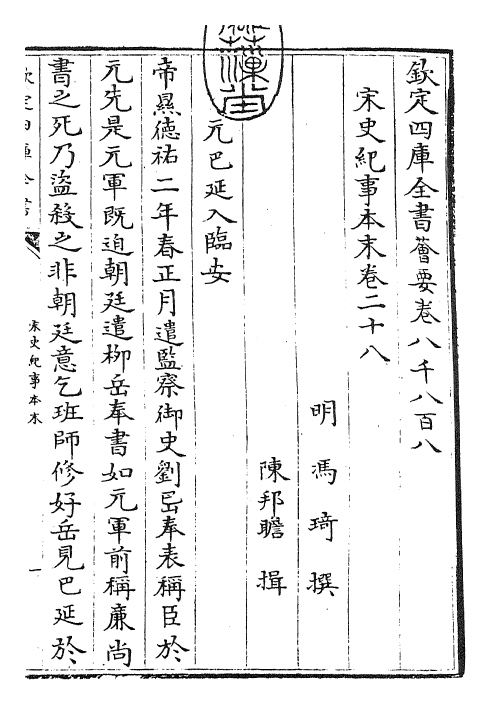 欽定四庫全書薈要卷八千八百八
宋史紀事本末卷二十八
明馮琦撰
陳邦瞻揖
元巴延入臨安
帝㬎德祐二年春正月遣監察御史劉岊奉表稱臣於
元先是元軍既迫朝廷遣栁岳奉書如元軍前稱廉尚
書之死乃盗殺之非朝廷意乞班師修好岳見巴延於
欽定四庫全書
宋史紀事本末
一